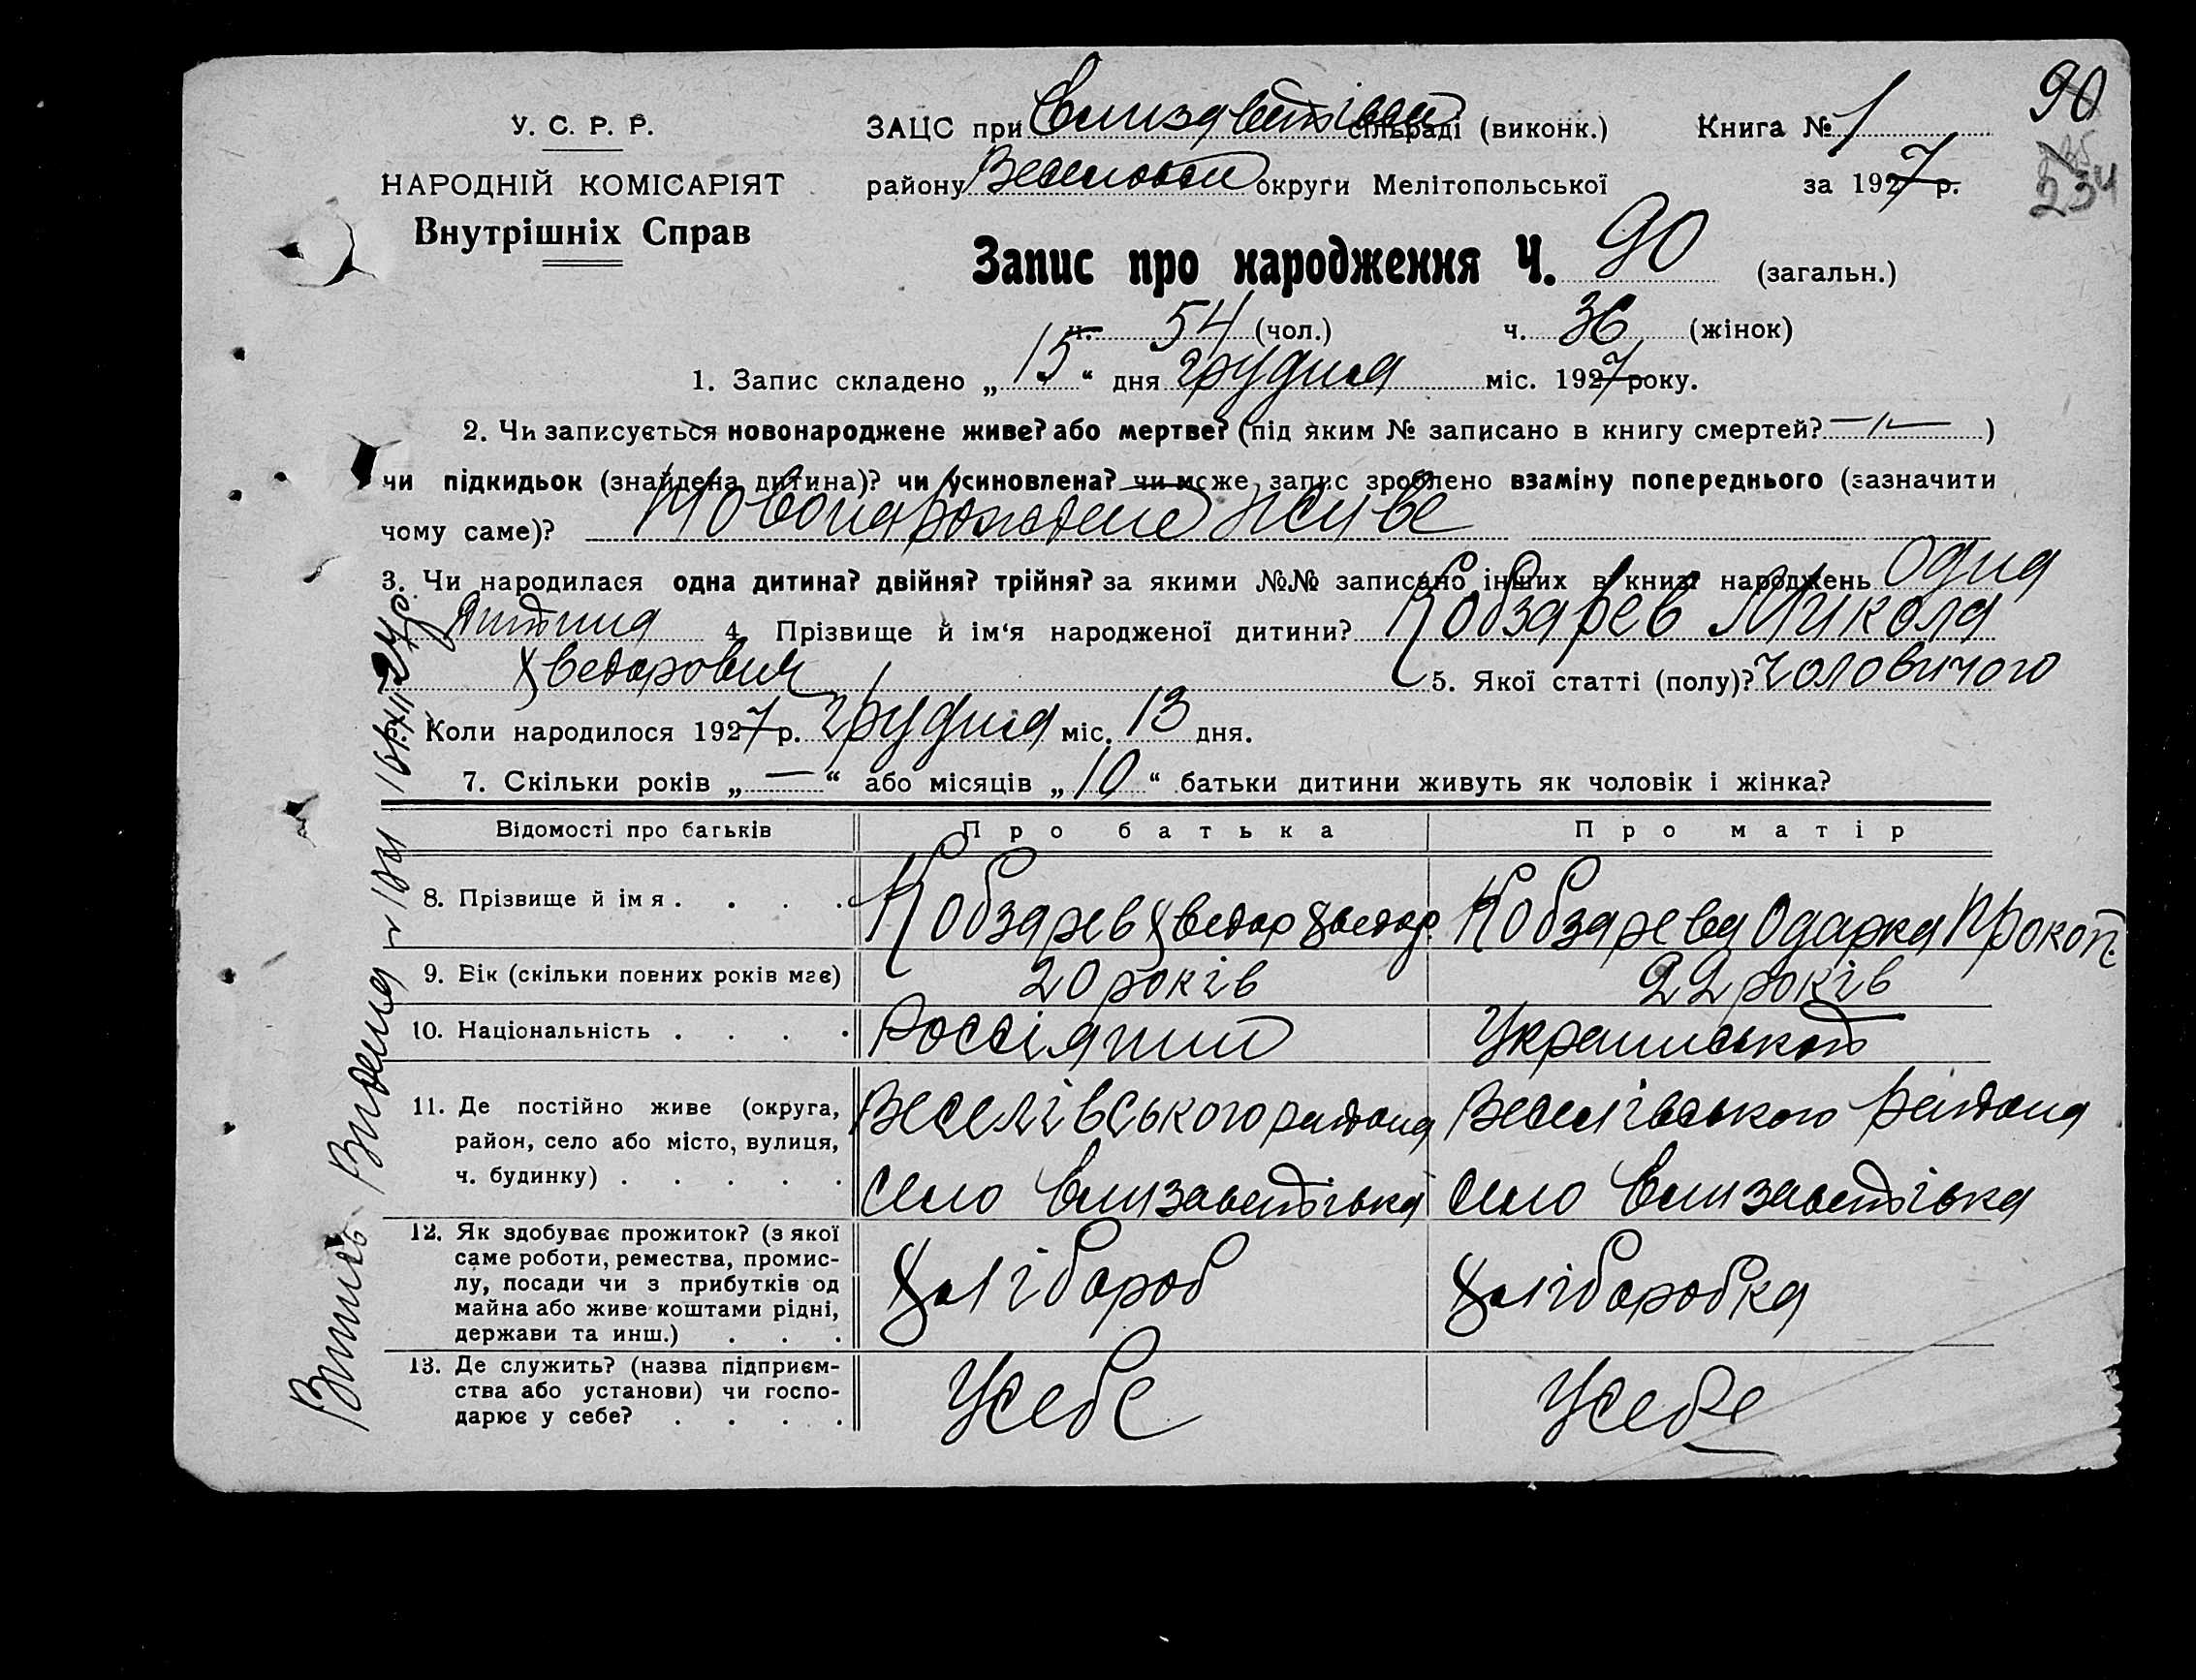 90
У. С. Р. Р.
ЗАЦС при Єлизаветівській сільраді (виконк.) Книга № 1
234
НАРОДНІЙ КОМІСАРІЯТ
району Веселовськ округи Мелітопольської за 1927 р.
Внутрішніх Справ
Запис про народження Ч. 90 (загальн.)
ч. 54 (чол.) ч. 36 (жінок)
1. Запис складено „ 15 “ дня грудня міс. 1927 року.
2. Чи записується новонароджене живе? або мертве? (під яким № записано в книгу смертей? — )
чи підкидьок (знайдена дитина)? чи усиновлена? чи може запис зроблено взаміну попереднього (зазначити
чому саме)? Новонарождене живе
3. Чи народилася одна дитина? двійня? трійня? за якими №№ записано інших в книзі народжень Одна
дитина 4. Прізвище й ім‘я народженої дитини? Кобзарев Микола
Хведорович 5. Якої статті (полу)? чоловичого
6. Коли народилося 1927 р. грудня міс. 13 дня.
7. Скільки років „ — “ або місяців „ 10 “ батьки дитини живуть як чоловік і жінка?
Відомості про батьків Про батька Про матір
8. Прізвище й імя . . . . Кобзарев Хведор Хведор. Кобзарева Одарка Прокоп.
9. Вік (скільки повних років має) 20 років 22 років
10. Національність . . . . Россіяний Украинської
11. Де постійно живе (округа, Веселівського района Веселівського района
район, село або місто, вулиця,
ч. будинку) . . . . . село Єлизаветівка село Єлизаветівка
12. Як здобуває прожиток? (з якої
саме роботи, ремества, промис-
лу, посади чи з прибутків од Хлібороб Хліборобка
майна або живе коштами рідні,
держави та инш.) . . .
13. Де служить? (назва підприєм-
ства або установи) чи госпо- Усебе Усебе
дарює у себе? . . . .
Витяг Видена